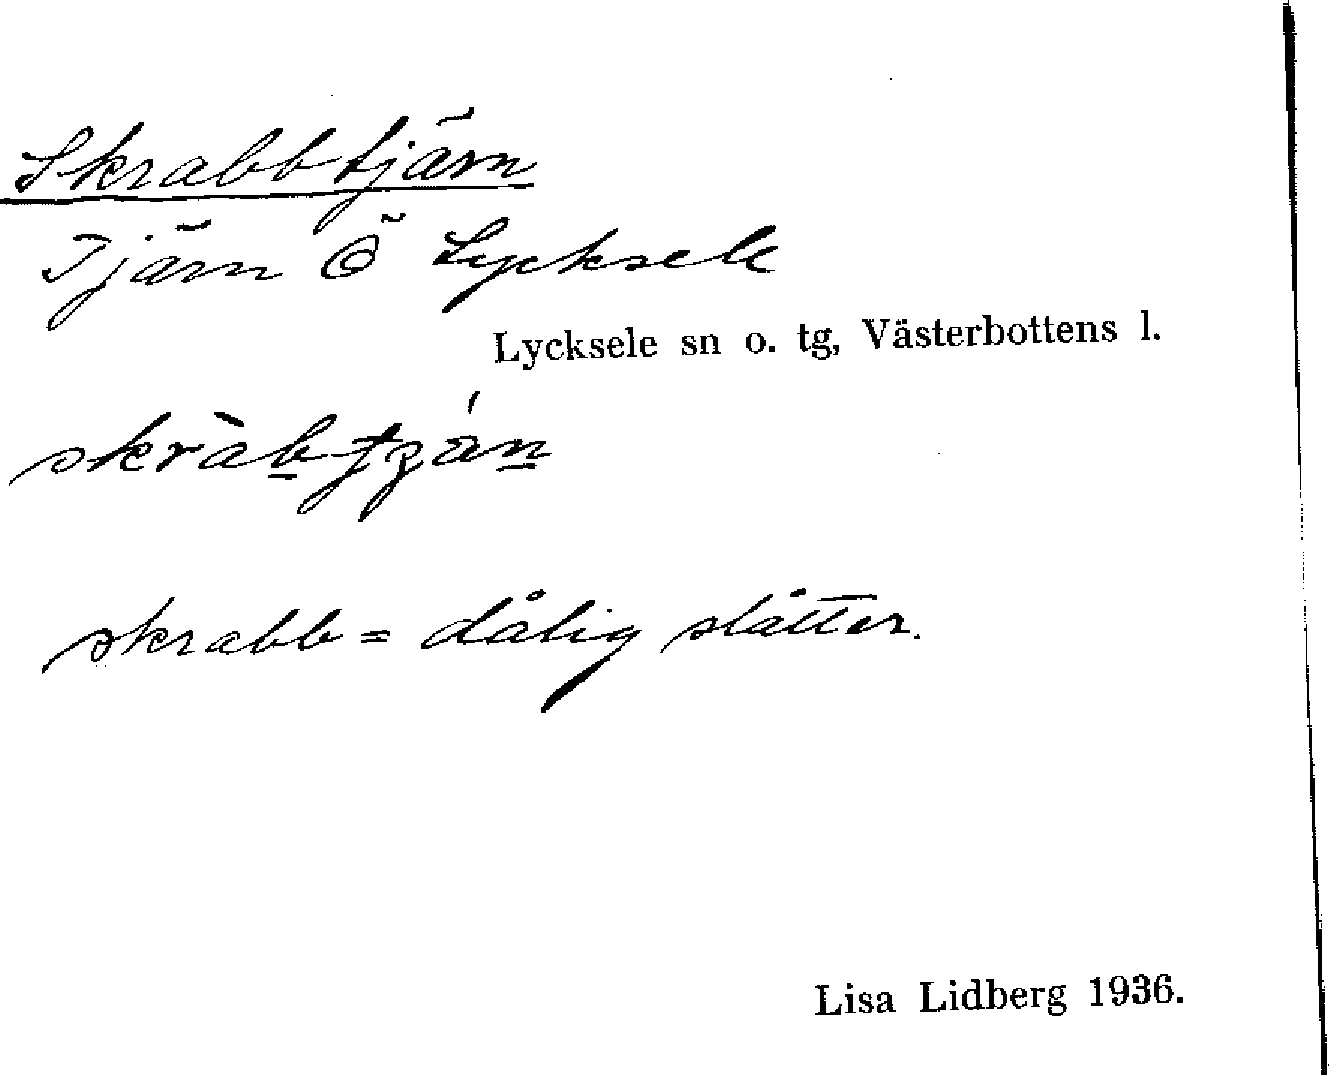 Skrabbtjärn
Tjärn Ö Lycksele
Lycksele sn o. tg, Västerbottens l.
skrabb = dålig slåtter.
Lisa Lidberg 1936.